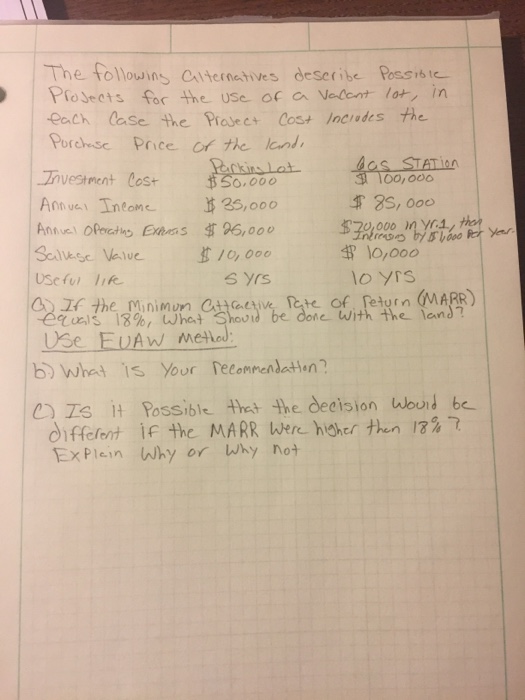 The following alternatives describe Possible
Projects for the use of a Vacant lot, in
each Case the Project Cost Includes the
Purchase Price of the land.
Parking Lot Gas STATION
Investment Cost $50,000 $100,000
Annual Income $35,000 $85,000
Annual Operating Expenses $25,000 $70,000 in yr.1, then Increasing by $1,000 Per Year.
Salvage Value $10,000 $10,000
Useful life 5 yrs 10 yrs
a) If the Minimum Attractive Rate of return (MARR)
equals 18%, What Should be done with the land?
Use EUAW Method:
b) What is Your recommendation?
c) Is it Possible that the decision Would be
different if the MARR Were higher than 18%?
Explain Why or Why not